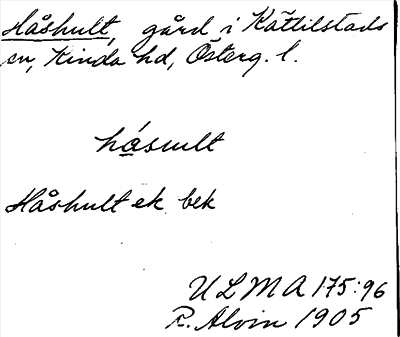 Håshult, gård i Kättilstads
sn, Kinda hd, Österg. l.
hásult
Håshult ek. bek
ULMA 175:96
R. Alvin 1905